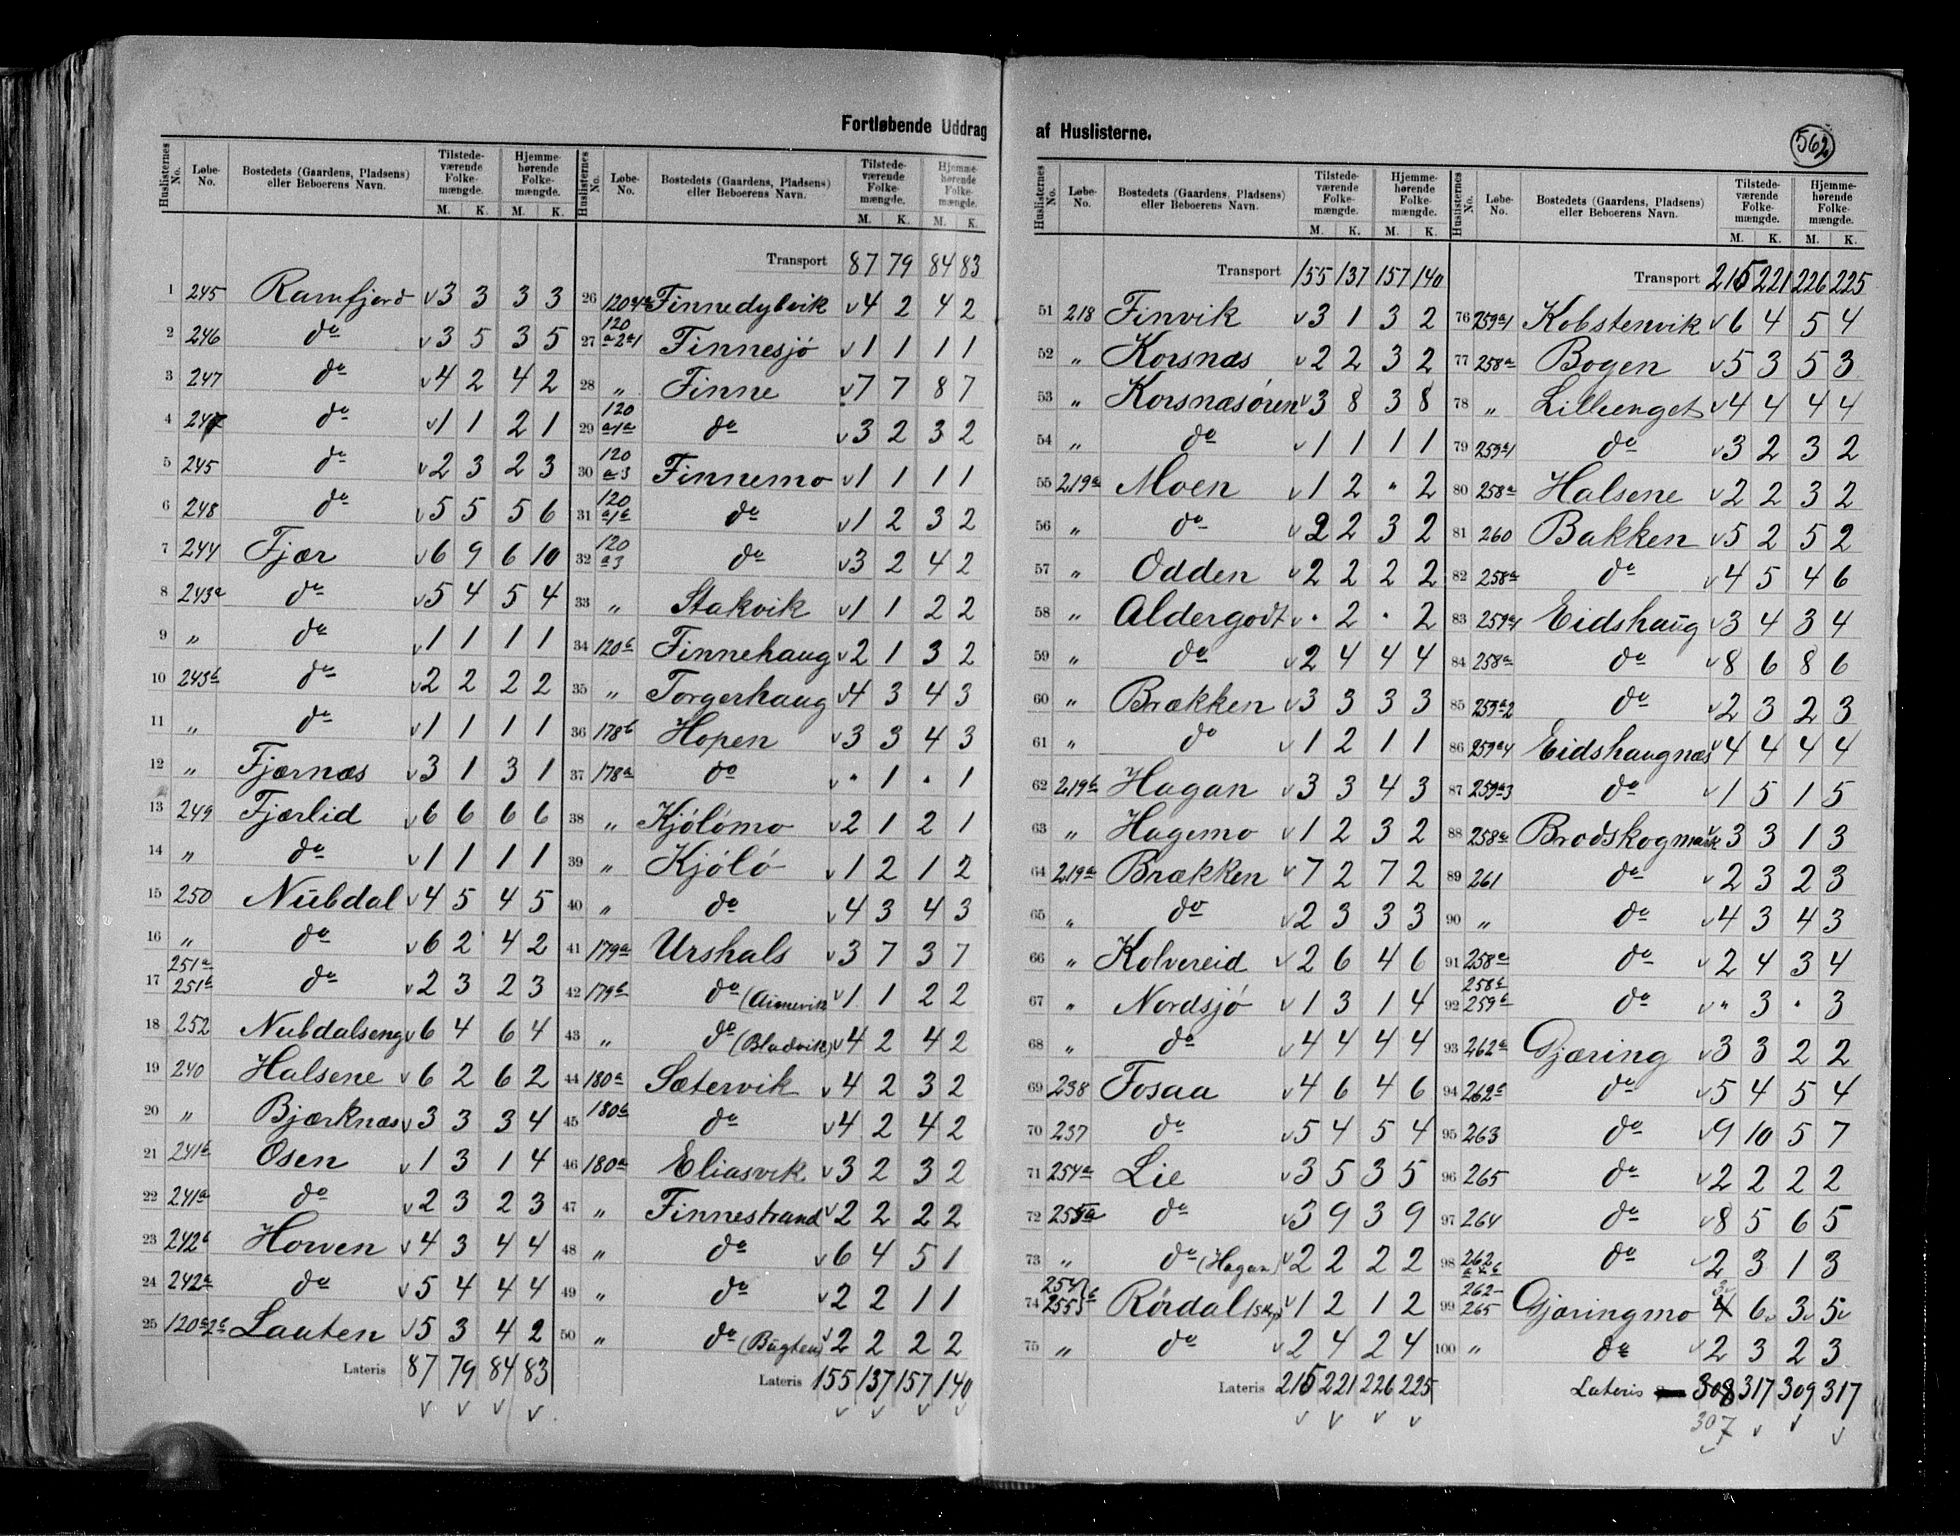 Fortløbende Uddrag af Huslisterne.
562
Huslisternes No. Løbe-No. Bostedets (Gaardens, Pladsens) eller Beboerens Navn. Tilstedeværende Folkemængde. M. K. Hjemmehørende Folkemængde. M. K.
1 245 Ramfjord v 3 3 3 3
2 246 do v 3 5 3 5
3 247 do v 4 2 4 2
4 247 do v 1 1 2 1
5 245 do v 2 3 2 3
6 248 do v 5 5 5 6
7 244 Fjær v 6 9 6 10
8 243a do v 5 4 5 4
9 „ do v 1 1 1 1
10 243b do v 2 2 2 2
11 „ do v 1 1 1 1
12 „ Fjærnæs v 3 1 3 1
13 249 Fjærlid v 6 6 6 6
14 „ do v 1 1 1 1
15 250 Nubdal v 4 5 4 5
16 „ do v 6 2 4 2
17 251a 251b do v 2 3 2 3
18 252 Nubdalseng v 6 4 6 4
19 240 Halsene v 6 2 6 2
20 „ Bjærknæs v 3 3 3 4
21 241b Osen v 1 3 1 4
22 241a do v 2 3 2 3
23 242b Horven v 4 3 4 4
24 242a do v 5 4 4 4
25 120a2b Lauten v 5 3 4 2
Lateris 87 79 84 83
v v v v
Huslisternes No. Løbe-No. Bostedets (Gaardens, Pladsens) eller Beboerens Navn. Tilstedeværende Folkemængde. M. K. Hjemmehørende Folkemængde. M. K.
Transport 87 79 84 83
26 120 4a Finnedybvik v 4 2 4 2
27 120 a2a1 Finnesjö v 1 1 1 1
28 „ Finne v 7 7 8 7
29 120 a1a do v 3 2 3 2
30 120 a3 Finnemo v 1 1 1 1
31 120 a1b do v 1 2 3 2
32 120 a3 do v 3 2 4 2
33 „ Stakvik v 1 1 2 2
34 120b Finnehaug v 2 1 3 2
35 „ Torgerhaug v 4 3 4 3
36 178b Hopen v 3 3 4 3
37 178a do v " 1 " 1
38 „ Kjölömo v 2 1 2 1
39 „ Kjölö v 1 2 1 2
40 „ do v 4 3 4 3
41 179a Urshals v 3 7 3 7
42 179b do v 1 1 2 2
43 „ do (Bladvik) v 4 2 4 2
44 180a Sætervik v 4 2 3 2
45 180b do v 4 2 4 2
46 180a Eliasvik v 3 2 3 2
47 „ Finnestrand v 2 2 2 2
48 „ do v 6 4 5 1
49 „ do v 2 2 1 1
50 „ do (Bugten) v 2 2 2 2
Lateris 155 137 157 140
v v v v
Huslisternes No. Løbe-No. Bostedets (Gaardens, Pladsens) eller Beboerens Navn. Tilstedeværende Folkemængde. M. K. Hjemmehørende Folkemængde. M. K.
Transport 155 137 157 140
51 218 Finvik v 3 1 3 2
52 „ Korsnæs v 2 2 3 2
53 „ Korsnæsören v 3 8 3 8
54 „ do v 1 1 1 1
55 219a Moen v 1 2 " 2
56 „ do v 2 2 3 2
57 „ Odden v 2 2 2 2
58 „ Aldergodt v " 2 " 2
59 „ do v 2 4 4 4
60 „ Brækken v 3 3 3 3
61 „ do v 1 2 1 1
62 219b Hagan v 3 3 4 3
63 „ Hagemo v 1 2 3 2
64 219a Brækken v 7 2 7 2
65 „ do v 2 3 3 3
66 „ Kolvereid v 2 6 4 6
67 „ Nordsjö v 1 3 1 4
68 „ do v 4 4 4 4
69 238 Fosaa v 4 6 4 6
70 237 do v 5 4 5 4
71 254a Lie v 3 5 3 5
72 255a do v 3 9 3 9
73 „ do (Hagan) v 2 2 2 2
74 254 255 b Rördal v 1 2 1 2
75 „ do v 2 4 2 4
Lateris 215 221 226 225
v v v v
Huslisternes No. Løbe-No. Bostedets (Gaardens, Pladsens) eller Beboerens Navn. Tilstedeværende Folkemængde. M. K. Hjemmehørende Folkemængde. M. K.
Transport 215 221 226 225
76 259a1 Kobstenvik v 6 4 5 4
77 258a Bogen v 5 3 5 3
78 „ Lilleenget v 4 4 4 4
79 259a1 do v 3 2 3 2
80 258a Halsene v 2 2 3 2
81 260 Bakken v 5 2 5 2
82 258a do v 4 5 4 6
83 259a1 Eidshaug v 3 4 3 4
84 258a do v 8 6 8 6
85 259a2 do v 2 3 2 3
86 259a4 Eidshaugnæs v 4 4 4 4
87 259a3 do v 1 5 1 5
88 258a Brodskogmark v 3 3 1 3
89 261 do v 2 3 2 3
90 „ do v 4 3 4 3
91 258a do v 2 4 3 4
92 258b 259b do v " 3 " 3
93 262a Gjæring v 3 3 2 2
94 262b do v 5 4 5 4
95 263 do v 9 10 5 7
96 265 do v 2 2 2 2
97 264 do v 8 5 6 5
98 262 a & b do v 2 3 1 3
99 262-265 Gjæringmo 3v 4 6v 3v 5v
100 „ do v 2 3 2 3
Lateris 308 317 309 317
307 v v v v